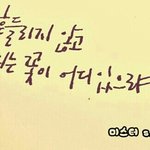 흔들리지 않고
피는 꽃이 어디 있으랴
미스터